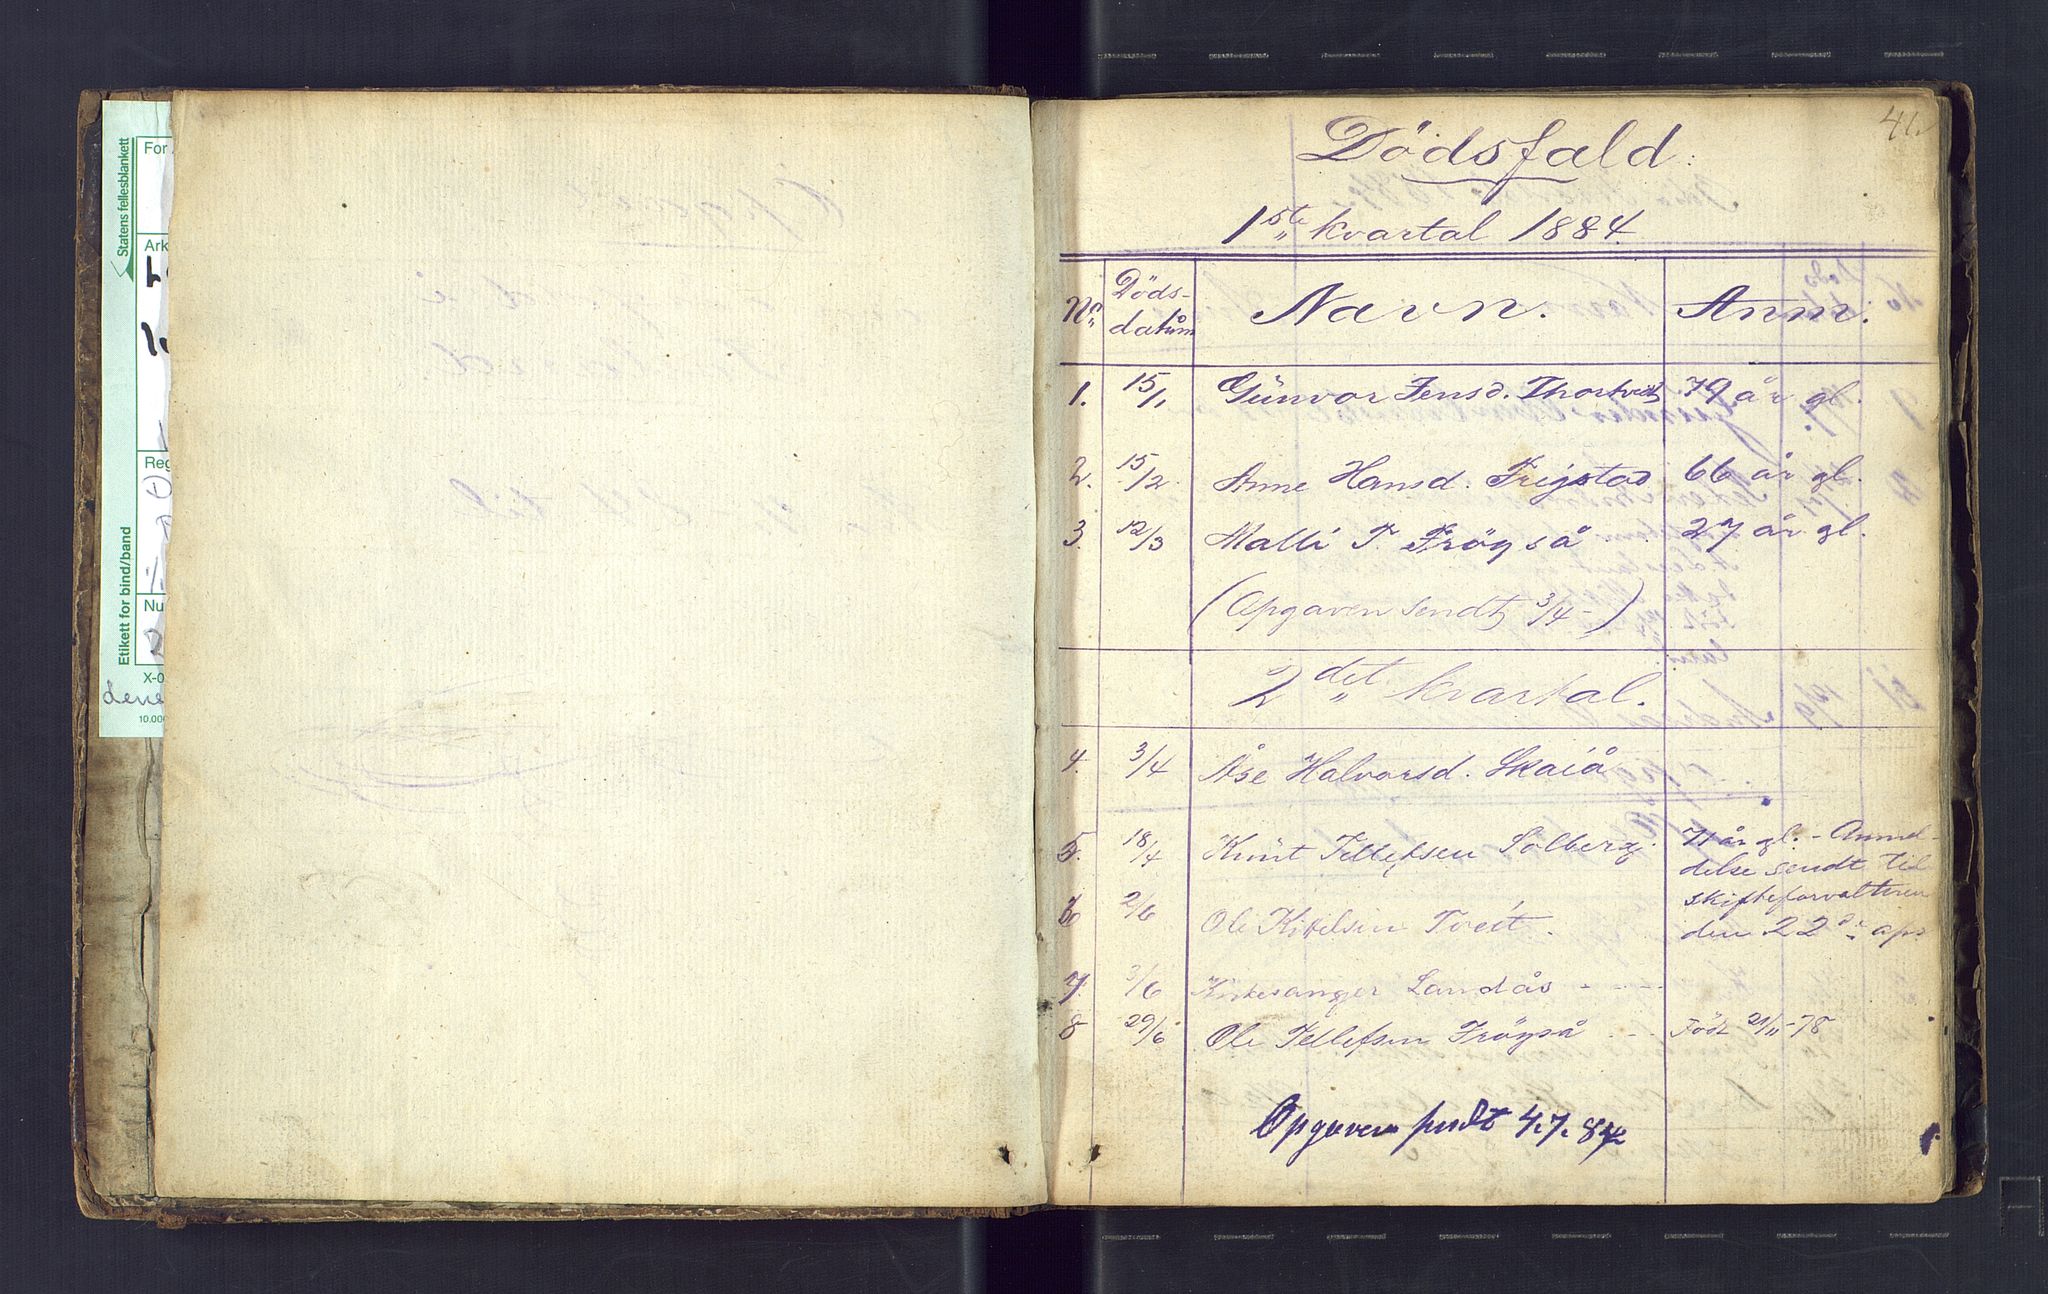 Statens fellesblankett
For
Ark
Reg
Etikett for bind/band
Nu
X-0
10.000
41.
Dödsfald.
1ste kvartal 1884.
No
Döds-
datum
Navn.
Anm.
1. 15/1 Günvor Jensd. Thortvedt 79 år gl.
2. 15/2 Anne Hansd. Frigstad 66 år gl.
3. 12/3 Malli T. Frögså 27 år gl.
(Opgaven sendt 3/4 -)
2det kvartal.
4. 3/4 Åse Halvorsd. Skaiå
5. 18/4 Knüt Tellefsen Solberg. 71 år gl. - Anmel-
delse sendt til
skifteforvalteren
6 2/6 Ole Kittelsen Tveit. den 22de apr.
7. 3/6 Kirkesanger Landås - - -
8 29/6 Ole Tellefsen Frögså - - Född 21/11-78
Opgaven sendt 4.7.84